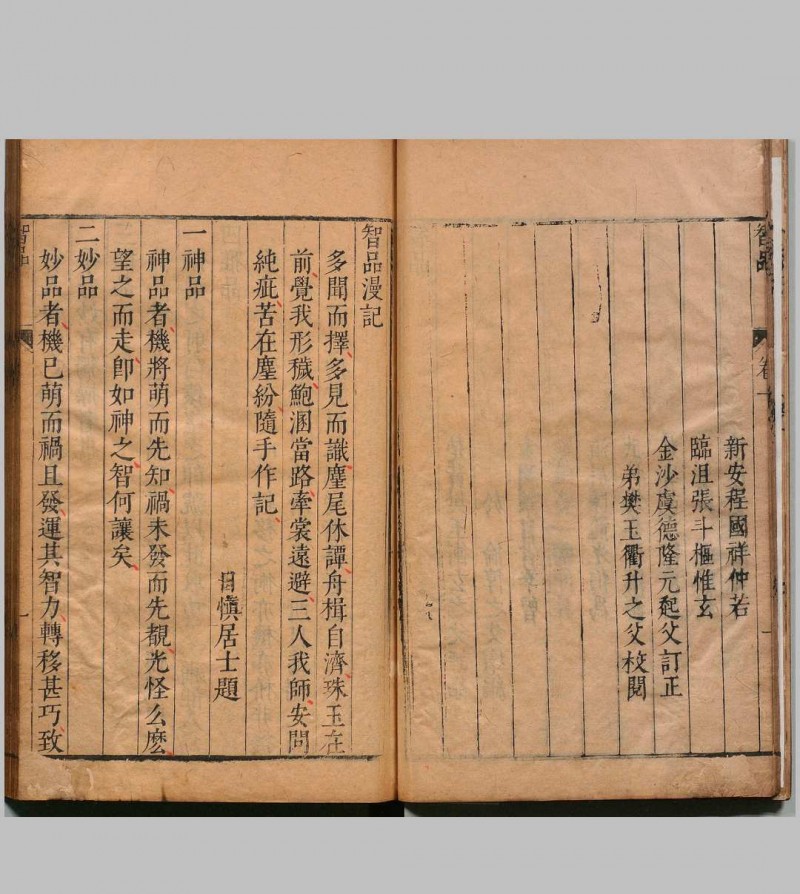 智品
卷
新安程國祥仲若
臨沮張斗樞惟玄
金沙虞德隆元起父訂正
弟樊玉衢升之父校閱
智品漫記
多聞而擇多見而識麈尾休譚舟楫自濟珠玉在
前覺我形穢鮑溷當路牽裳遠避三人我師安問
純疵苦在塵紛隨手作記
慎居士題
一神品
神品者機將萌而先知禍未發而先覩光怪么麼
望之而走卽如神之智何讓矣
二妙品
妙品者機已萌而禍且發運其智力轉移甚巧致
智品
一